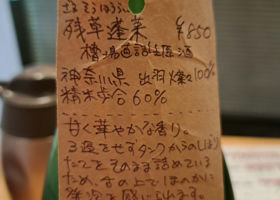 残草蓬莱 ¥850
槽場直詰生原酒
神奈川県 出羽燦々100%
精米歩合60%
甘く華やかな香り。
3過をせずタンクからのしぼり
たてをそのまま詰めている
ため、舌の上でほのかに
発泡を感じられます。